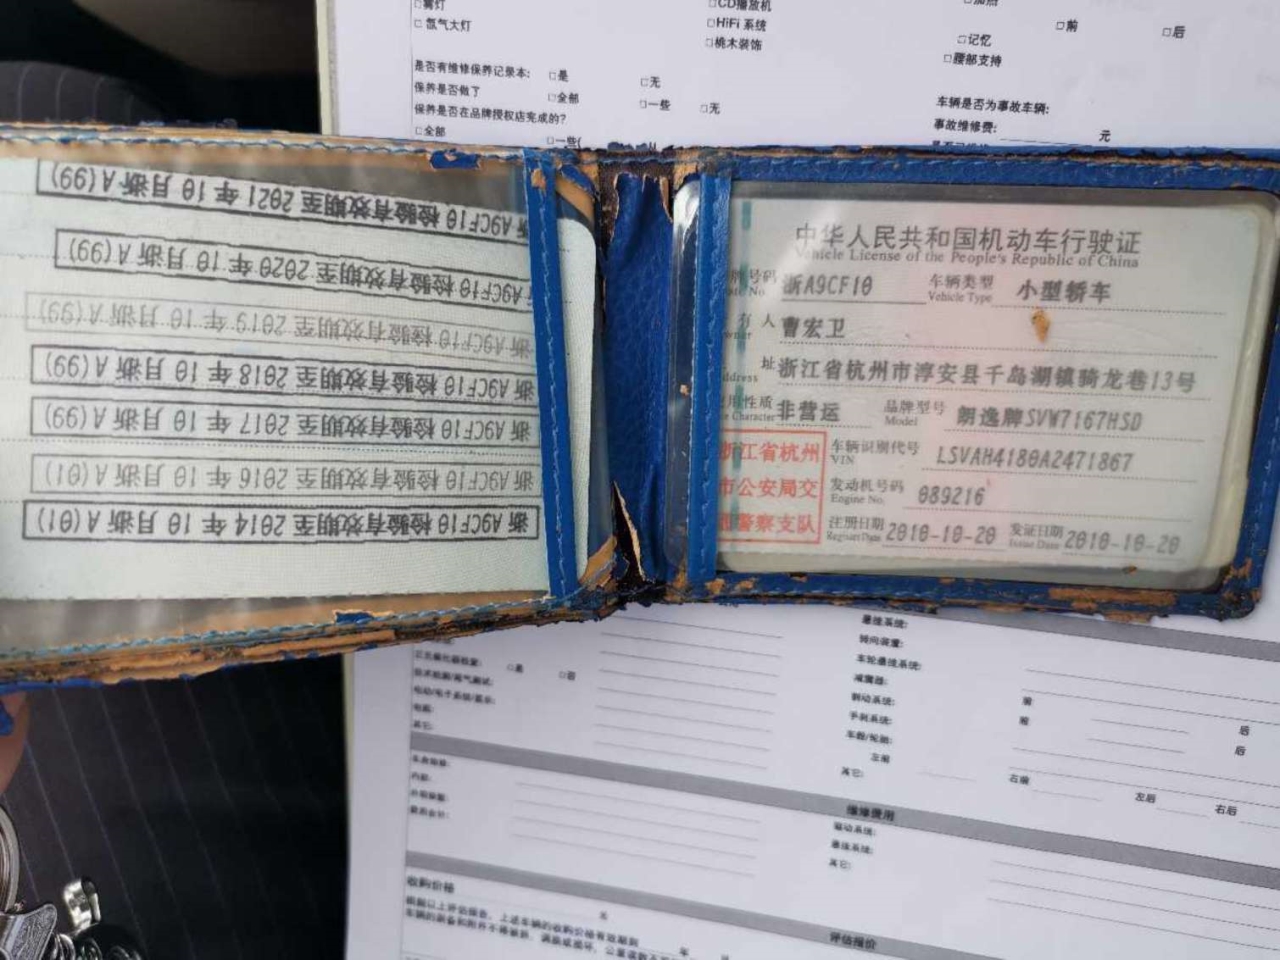 □雾灯
□氙气大灯
□CD播放机
□HiFi 系统
□桃木装饰
□加热
□前
□后
□记忆
□腰部支持
是否有维修保养记录本: □是 □无
保养是否做了 □全部 □一些 □无
保养是否在品牌授权店完成的?
□全部 □一些(
车辆是否为事故车辆:
事故维修费: 元
浙A9CF10 检验有效期至 2021 年 10 月浙 A(99)
浙A9CF10 检验有效期至 2020 年 10 月浙 A(99)
浙 A9CF10 检验有效期至 2019 年 10 月浙 A(99)
浙 A9CF10 检验有效期至 2018 年 10 月浙 A(99)
浙 A9CF10 检验有效期至 2017 年 10 月浙 A(99)
浙 A9CF10 检验有效期至 2016 年 10 月浙 A(01)
浙 A9CF10 检验有效期至 2014 年 10 月浙 A(01)
中华人民共和国机动车行驶证
Vehicle License of the People's Republic of China
牌号码 浙A9CF10 车辆类型 小型轿车
No Vehicle Type
有 人 曹宏卫
址 浙江省杭州市淳安县千岛湖镇骑龙巷13号
用性质 非营运 品牌型号 朗逸牌SVW7167HSD
Character Model
浙江省杭州
市公安局交
警察支队
车辆识别代号 LSVAH4180A2471867
VIN
发动机号码 089216
Engine No.
注册日期 2010-10-20 发证日期 2010-10-20
Register Date Issue Date
悬挂系统:
转向装置:
车轮悬挂系统:
减震器:
制动系统: 前 后
手刹系统: 前 后
车胎/轮毂:
左前 右前 左后 右后
其它:
□是 □否
电动/电子系统/显示:
电瓶:
其它:
内部:
维修费用
驱动系统:
悬挂系统:
其它:
收购价格
元
根据以上评估报告，上述车辆的收购价格有效期到 年
评估报价